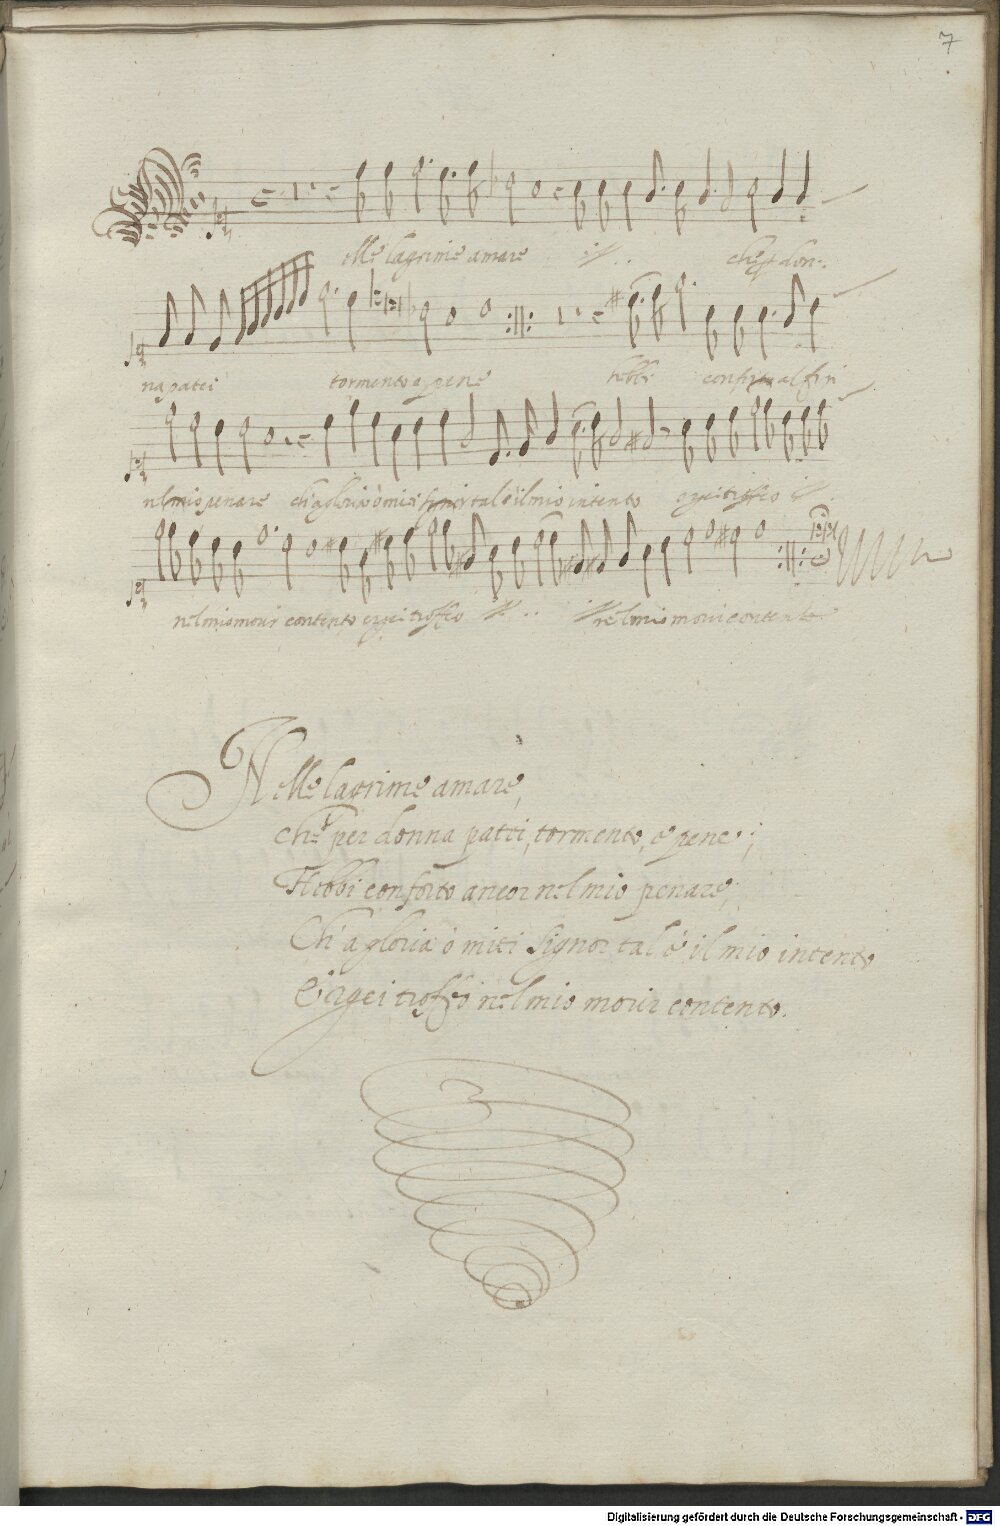 7
elle lagrime amare
che p don
na patei tormento e pene hebbi conforto al fin
nel mio penare ch'a gloria ò miei signor tal è il mio intento ergei troffeo
nel mio morir contento ergei troffeo nel mio morir contento
Nelle lagrime amare,
che per donna patei, tormento, e pene;
Hebbi conforto ancor nel mio penare;
Ch' a gloria ò miei Signor tal è il mio intento
Ergei troffeo nel mio morir contento.
Digitalisierung gefördert durch die Deutsche Forschungsgemeinschaft - DFG